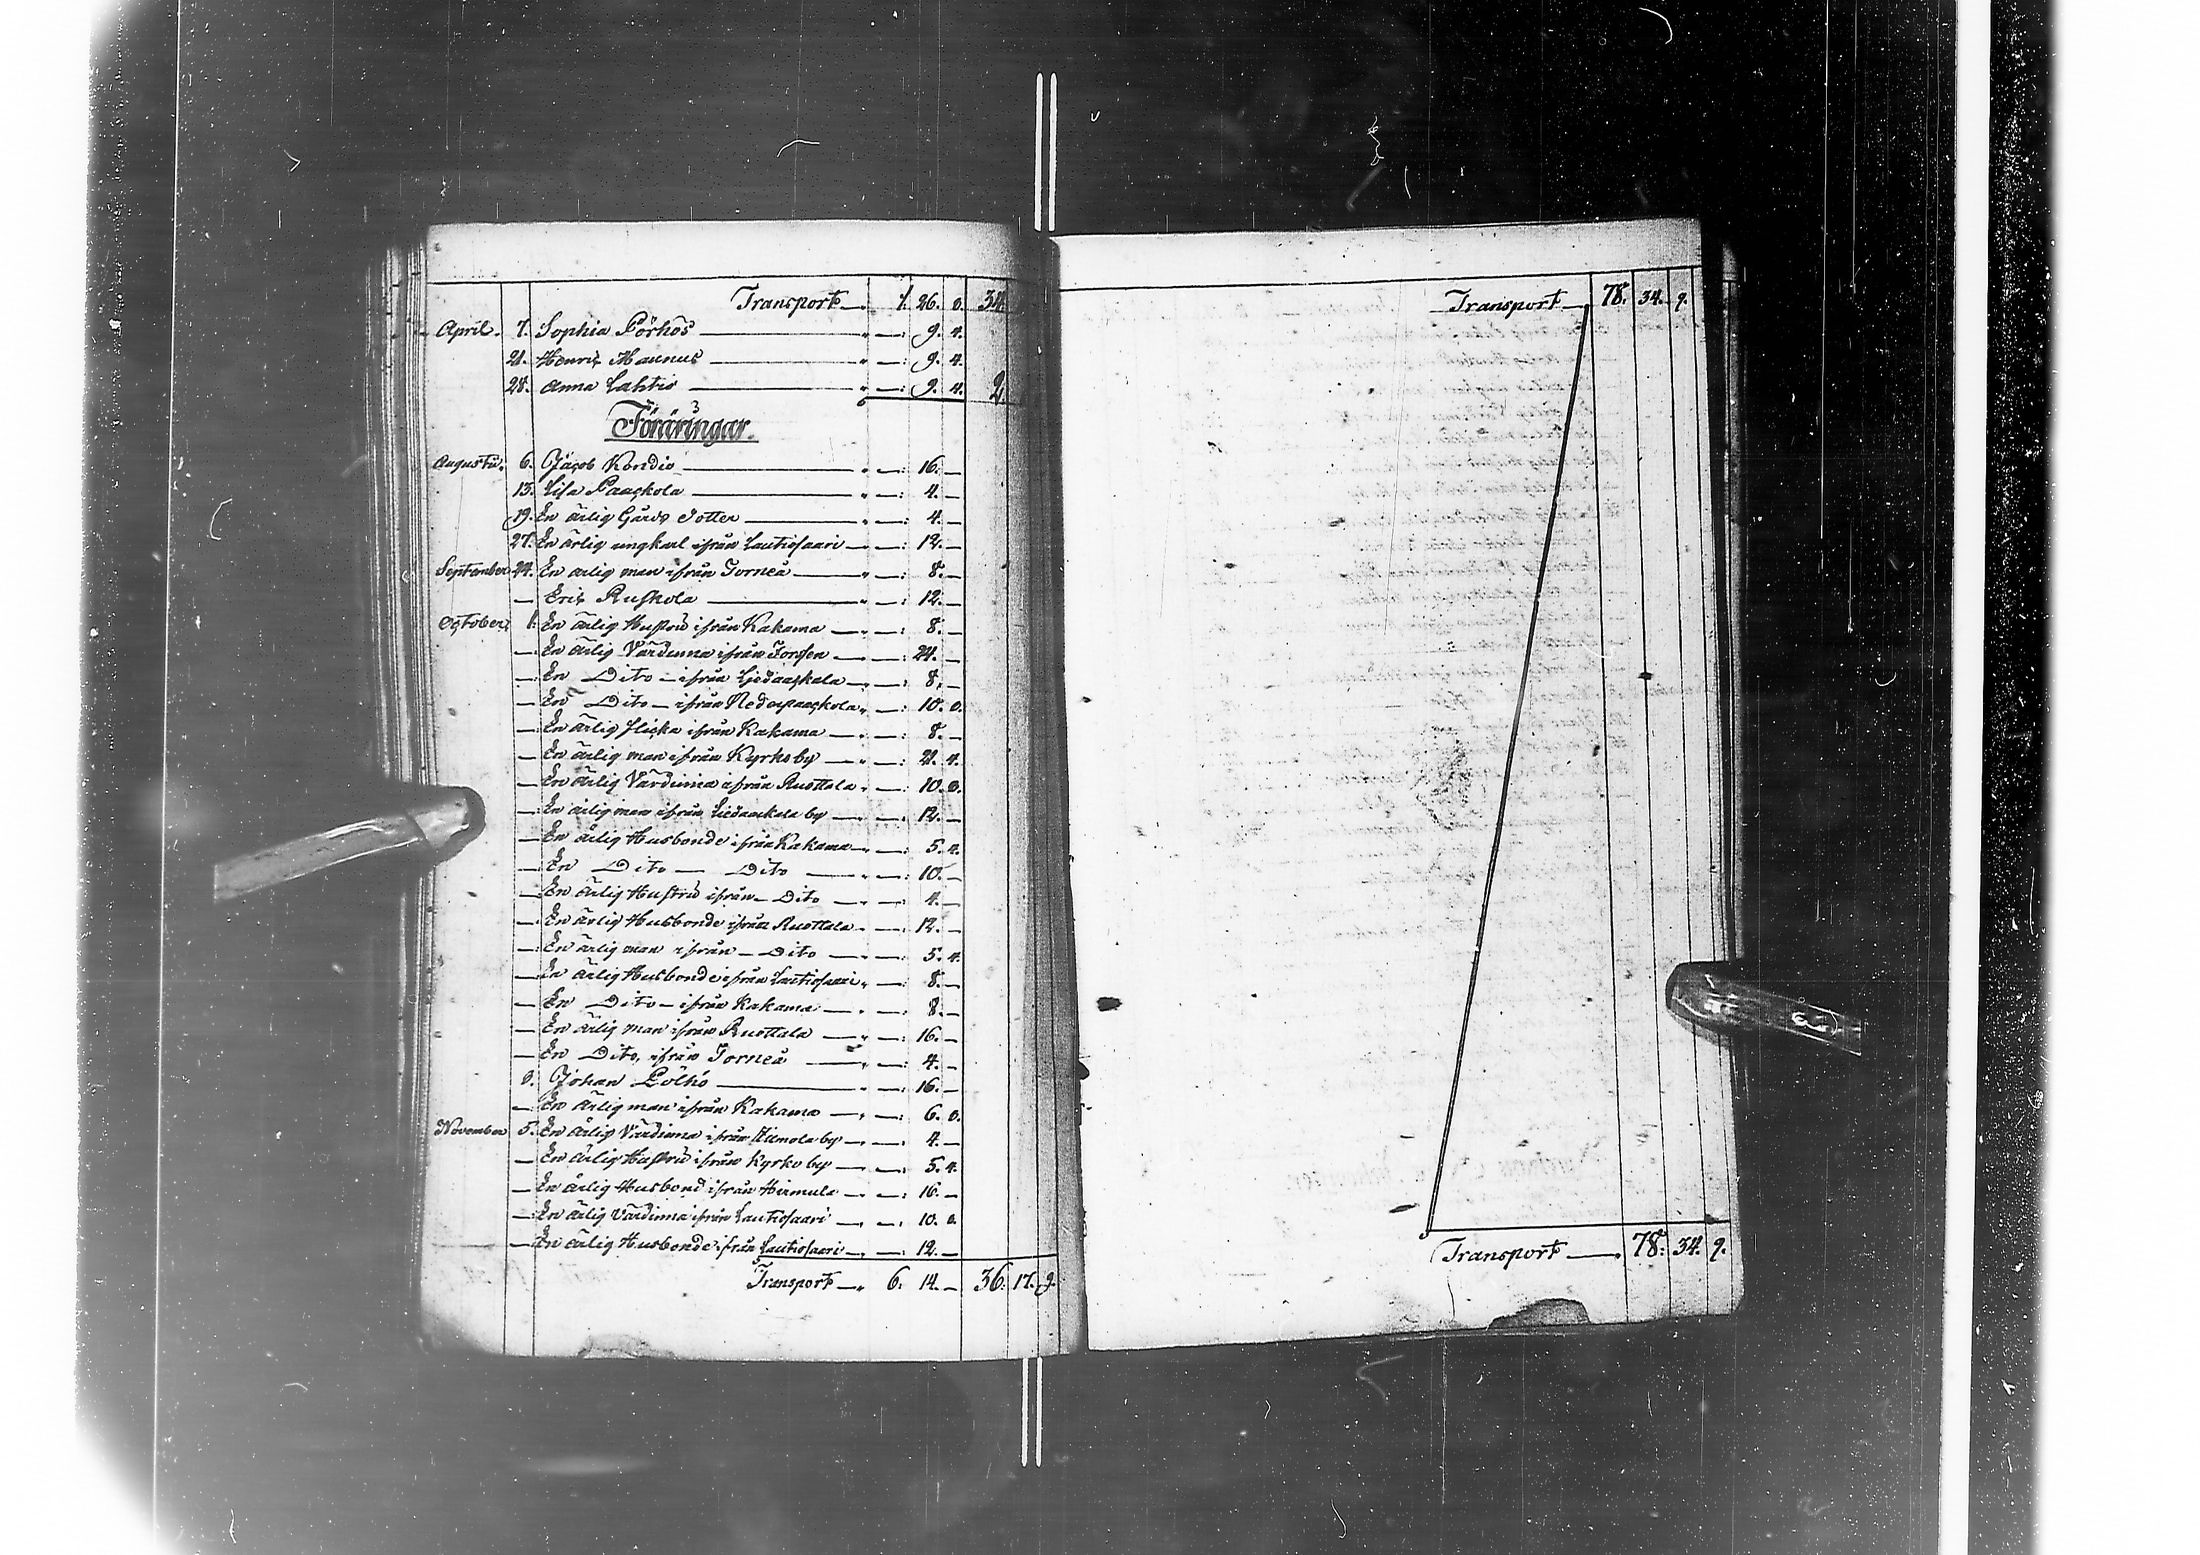 Transport — 1. 26. 8. 34
April. 7. Sophia Pörhös — " — : 9. 4.
21. Henric Mannus — " — : 9. 4.
28. Anna Lahtis — " — : 9. 4. 2.
Föräringar.
Augusti. 6. Jacob Kondio — " — : 16. —
13. Lisa Paackola — " — : 4. —
19. En ärlig Gårds dotter — " — : 4. —
27. En ärlig ungkarl ifrån Lautiosaari — " — : 12. —
September 24. En ärlig man ifrån Torneå — " — : 8. —
— Eric Ruskola — " — : 12. —
October. 1. En ärlig Hustru ifrån Kakama — " — : 8. —
— En ärlig Värdinna ifrån — " — : 24. —
— En Dito — ifrån Liedackala — " — : 8. —
— En Dito — ifrån Nederpaackola " — : 10. 8.
— En ärlig flicka ifrån Kakama — " — : 8. —
— En ärlig man ifrån Kyrko by — " — : 21. 4.
— En ärlig Värdinna ifrån Ruottala " — : 10. 8.
— En ärlig man ifrån Liedackala by — : 12. —
— En ärlig Husbonde ifrån Kakama — " — : 5. 4.
— En Dito — Dito — " — : 10. —
— En ärlig Hustru ifrån — Dito — " — : 4. —
— En ärlig Husbonde ifrån Ruottala " — : 12. —
— En ärlig man ifrån — Dito — " — : 5. 4.
— En ärlig Husbonde ifrån Lautiosaari " — : 8. —
— En Dito — ifrån Kakama — " — : 8. —
— En ärlig man ifrån Ruottala — " — : 16. —
— En Dito, ifrån Torneå — " — : 4. —
8. Johan Pölhö — " — : 16. —
— En ärlig man ifrån Kakama — " — : 6. 8.
November 5. En ärlig Värdinna ifrån by — " — : 4. —
— En ärlig Hustru ifrån Kyrko by — " — : 5. 4.
— En ärlig Husbond ifrån Hirmula — " — : 16. —
— En ärlig Värdinna ifrån Lautiosaari — " — : 10. 8.
— En ärlig Husbonde ifrån Lautiosaari — " — : 12. —
Transport — " 6. 14. — 36. 17. 9.
Transport — 78. 34. 9.
Transport — 78. 34. 9.